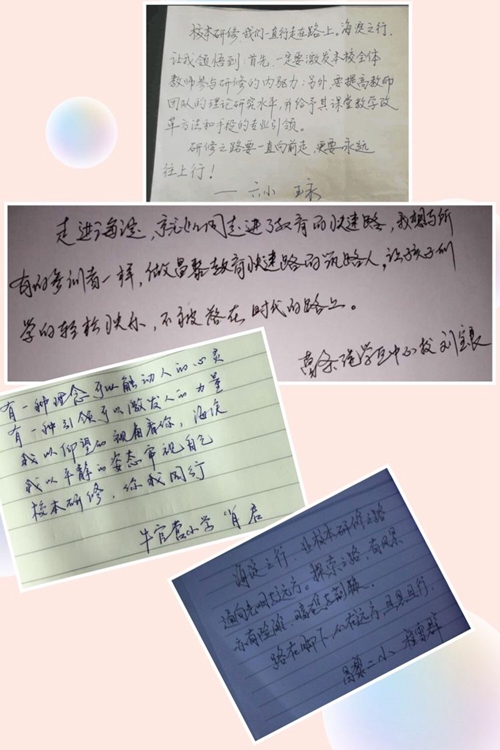 校本研修,我们一直行走在路上。海淀之行,
让我领悟到:首先,一定要激发本校全体
教师参与研修的内驱力;另外,要提高教师
团队的理论研究水平,并给予其课堂教学改
革方法和手段的专业引领。
研修之路要一直向前走,更要永远
往上行!
——六小
走进海淀,就如同走进了教育的快速路,我想与所
有的参训者一样,做昌黎教育快速路的筑路人,让孩子们
学的轻松快乐,不被落在时代的路上。
学区中心校 刘
有一种理念可以触动人的心灵
有一种引领可以激发人的力量
我以仰望的视角看你,海淀
我以平静的姿态审视自己
校本研修,你我同行
牛官营小学 肖
海淀之行 校本研修之路
通向 远方。探索之路,有风景,
亦有险滩,
路在脚下,心在远方,且思且行。
昌黎二小 程 群